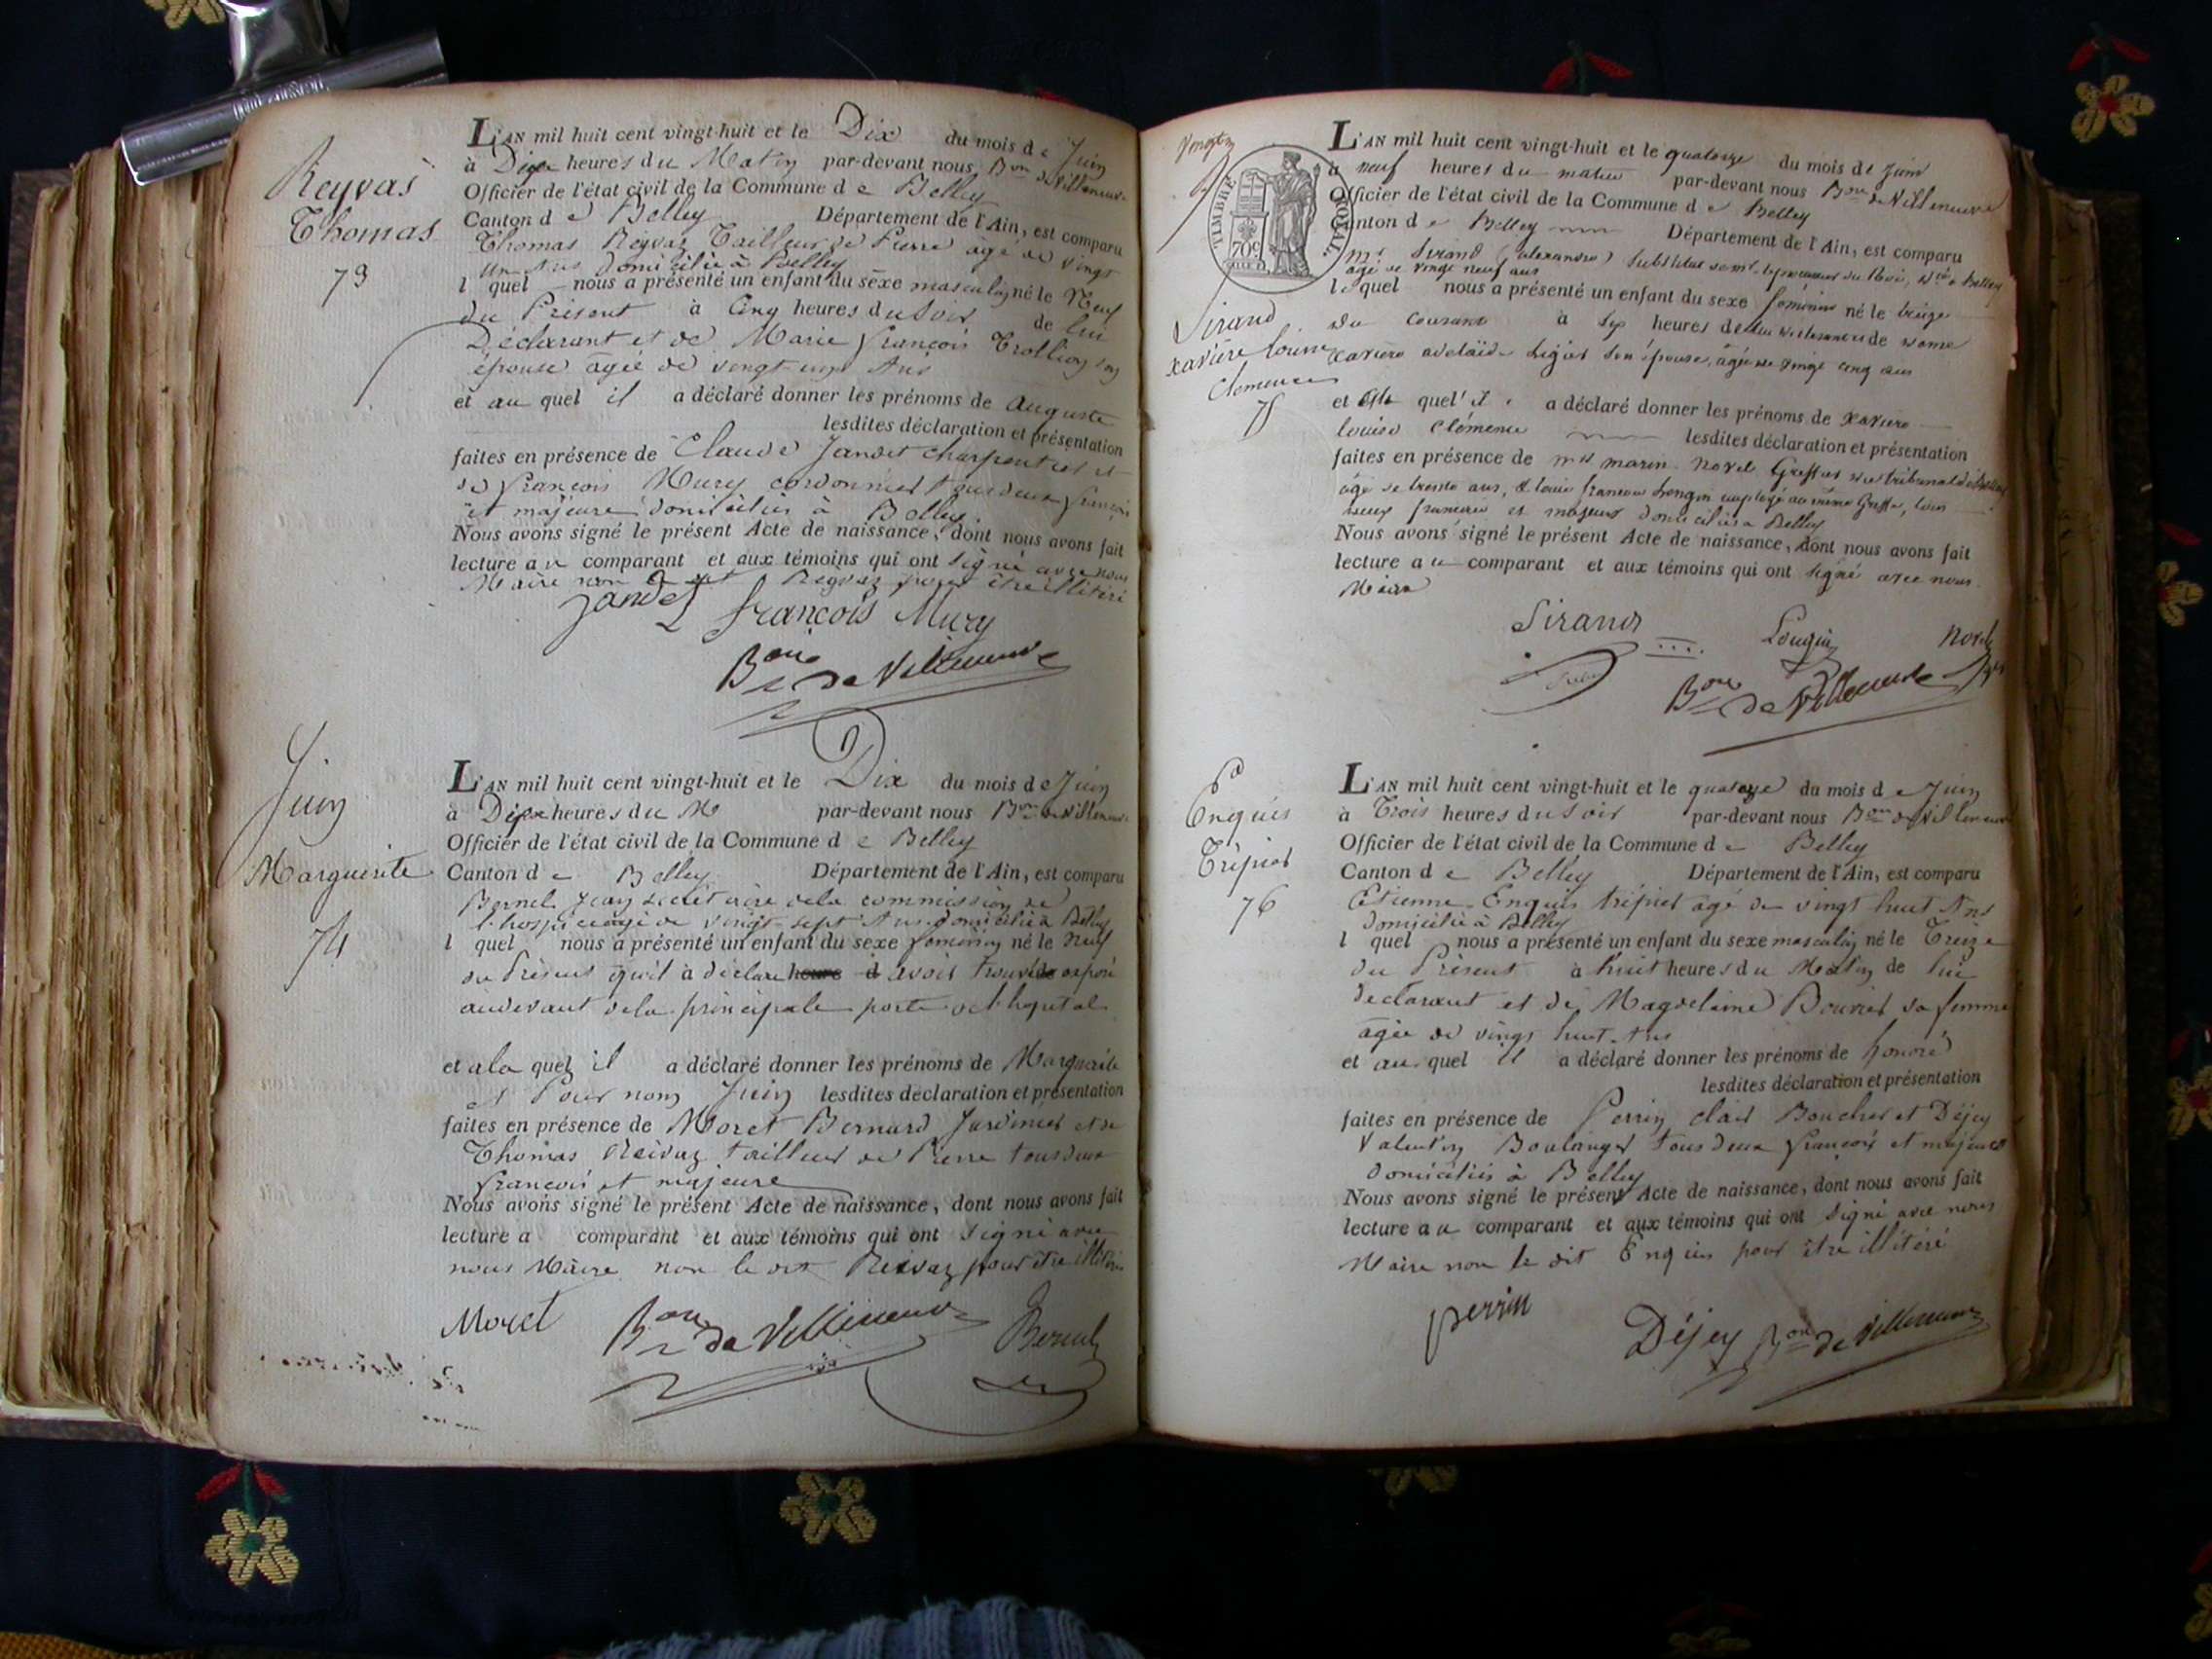 Reyvas
Thomas
73
L'AN mil huit cent vingt-huit et le Dix du mois de Juin
à Dix heures du Matin par-devant nous Bon de Villeneuve
Officier de l'état civil de la Commune de Belley
Canton de Belley Département de l'Ain, est comparu
Thomas Reyvaz Tailleur de Pierre âgé de vingt
un Ans domicilié à Belley
lequel nous a présenté un enfant du sexe masculin né le Neuf
du Présent à Cinq heures du Soir de lui
Déclarant et de Marie françois Trollion son
épouse âgée de vingt un Ans
et au quel il a déclaré donner les prénoms de Auguste
lesdites déclaration et présentation
faites en présence de Claude Jandet charpentier et
de françois Mury cordonnier tous deux françois
et majeure domiciliés à Belley
Nous avons signé le présent Acte de naissance, dont nous avons fait
lecture au comparant et aux témoins qui ont signé avec nous
Maire non Reyvaz pour être illitéré
Jandet françois Mury
Bon de Villeneuve
Juin
Marguerite
74
L'AN mil huit cent vingt-huit et le Dix du mois de Juin
à Dix heures du M par-devant nous Bon de Villeneuve
Officier de l'état civil de la Commune de Belley
Canton de Belley Département de l'Ain, est comparu
Bernel Jean secrétaire de la commission de
l'hospice âgé de vingt-sept Ans domicilié à Belley
l quel nous a présenté un enfant du sexe féminin né le neuf
du Présent qu'il à déclare heure d avoir trouvé exposé
au devant de la principale porte de l'hopital
et a la quel il a déclaré donner les prénoms de Marguerite
et Pour nom Juin lesdites déclaration et présentation
faites en présence de Moret Bernard Jardinier et de
Thomas Reivaz tailleur de Pierre tous deux
françois et majeure
Nous avons signé le présent Acte de naissance, dont nous avons fait
lecture a comparant et aux témoins qui ont signé avec
nous Maire non le dit Reivaz pour être illitéré
Moret Bon de Villeneuve Bernel
TIMBRE ROYAL
70c
Sirand
xavière louise
Clemence
75
L'AN mil huit cent vingt-huit et le quatorze du mois de Juin
à neuf heures du matin par-devant nous Bon de Villeneuve
Officier de l'état civil de la Commune de Belley
Canton de Belley Département de l'Ain, est comparu
Mr Sirand (alexandre) Substitut de Mr le procureur du Roi, dlié à Belley
âgé de vingt neuf ans
lequel nous a présenté un enfant du sexe féminin né le treize
du courant à six heures de lui de dame
xavière adelaïde son épouse, âgée de vingt cinq ans
et quel il a déclaré donner les prénoms de xavière
louise clémence lesdites déclaration et présentation
faites en présence de mrs marin Novel Greffier du tribunal de Belley
âgé de trente ans, & louis françois Longin employé au même Greffe, tous
deux français et majeurs domiciliés à Belley
Nous avons signé le présent Acte de naissance, dont nous avons fait
lecture au comparant et aux témoins qui ont signé avec nous
Maire
Sirand Longin Novel
Bon de Villeneuve
Enquis
Trépier
76
L'AN mil huit cent vingt-huit et le quatorze du mois de Juin
à Trois heures du Soir par-devant nous Bon de Villeneuve
Officier de l'état civil de la Commune de Belley
Canton de Belley Département de l'Ain, est comparu
Etienne Enquis trépier âgé de vingt huit Ans
domicilié à Belley
l quel nous a présenté un enfant du sexe masculin né le Treize
du Présent à huit heures du Matin de lui
declarant et de Magdelaine Bouvier sa femme
âgée de vingt huit Ans
et au quel il a déclaré donner les prénoms de honoré
lesdites déclaration et présentation
faites en présence de Perrin clair Boucher et Déjey
Valentin Boulanger tous deux françois et majeure
domiciliés à Belley
Nous avons signé le présent Acte de naissance, dont nous avons fait
lecture au comparant et aux témoins qui ont signé avec nous
Maire non le dit Enquis pour être illitéré
perrin
Déjey Bon de Villeneuve